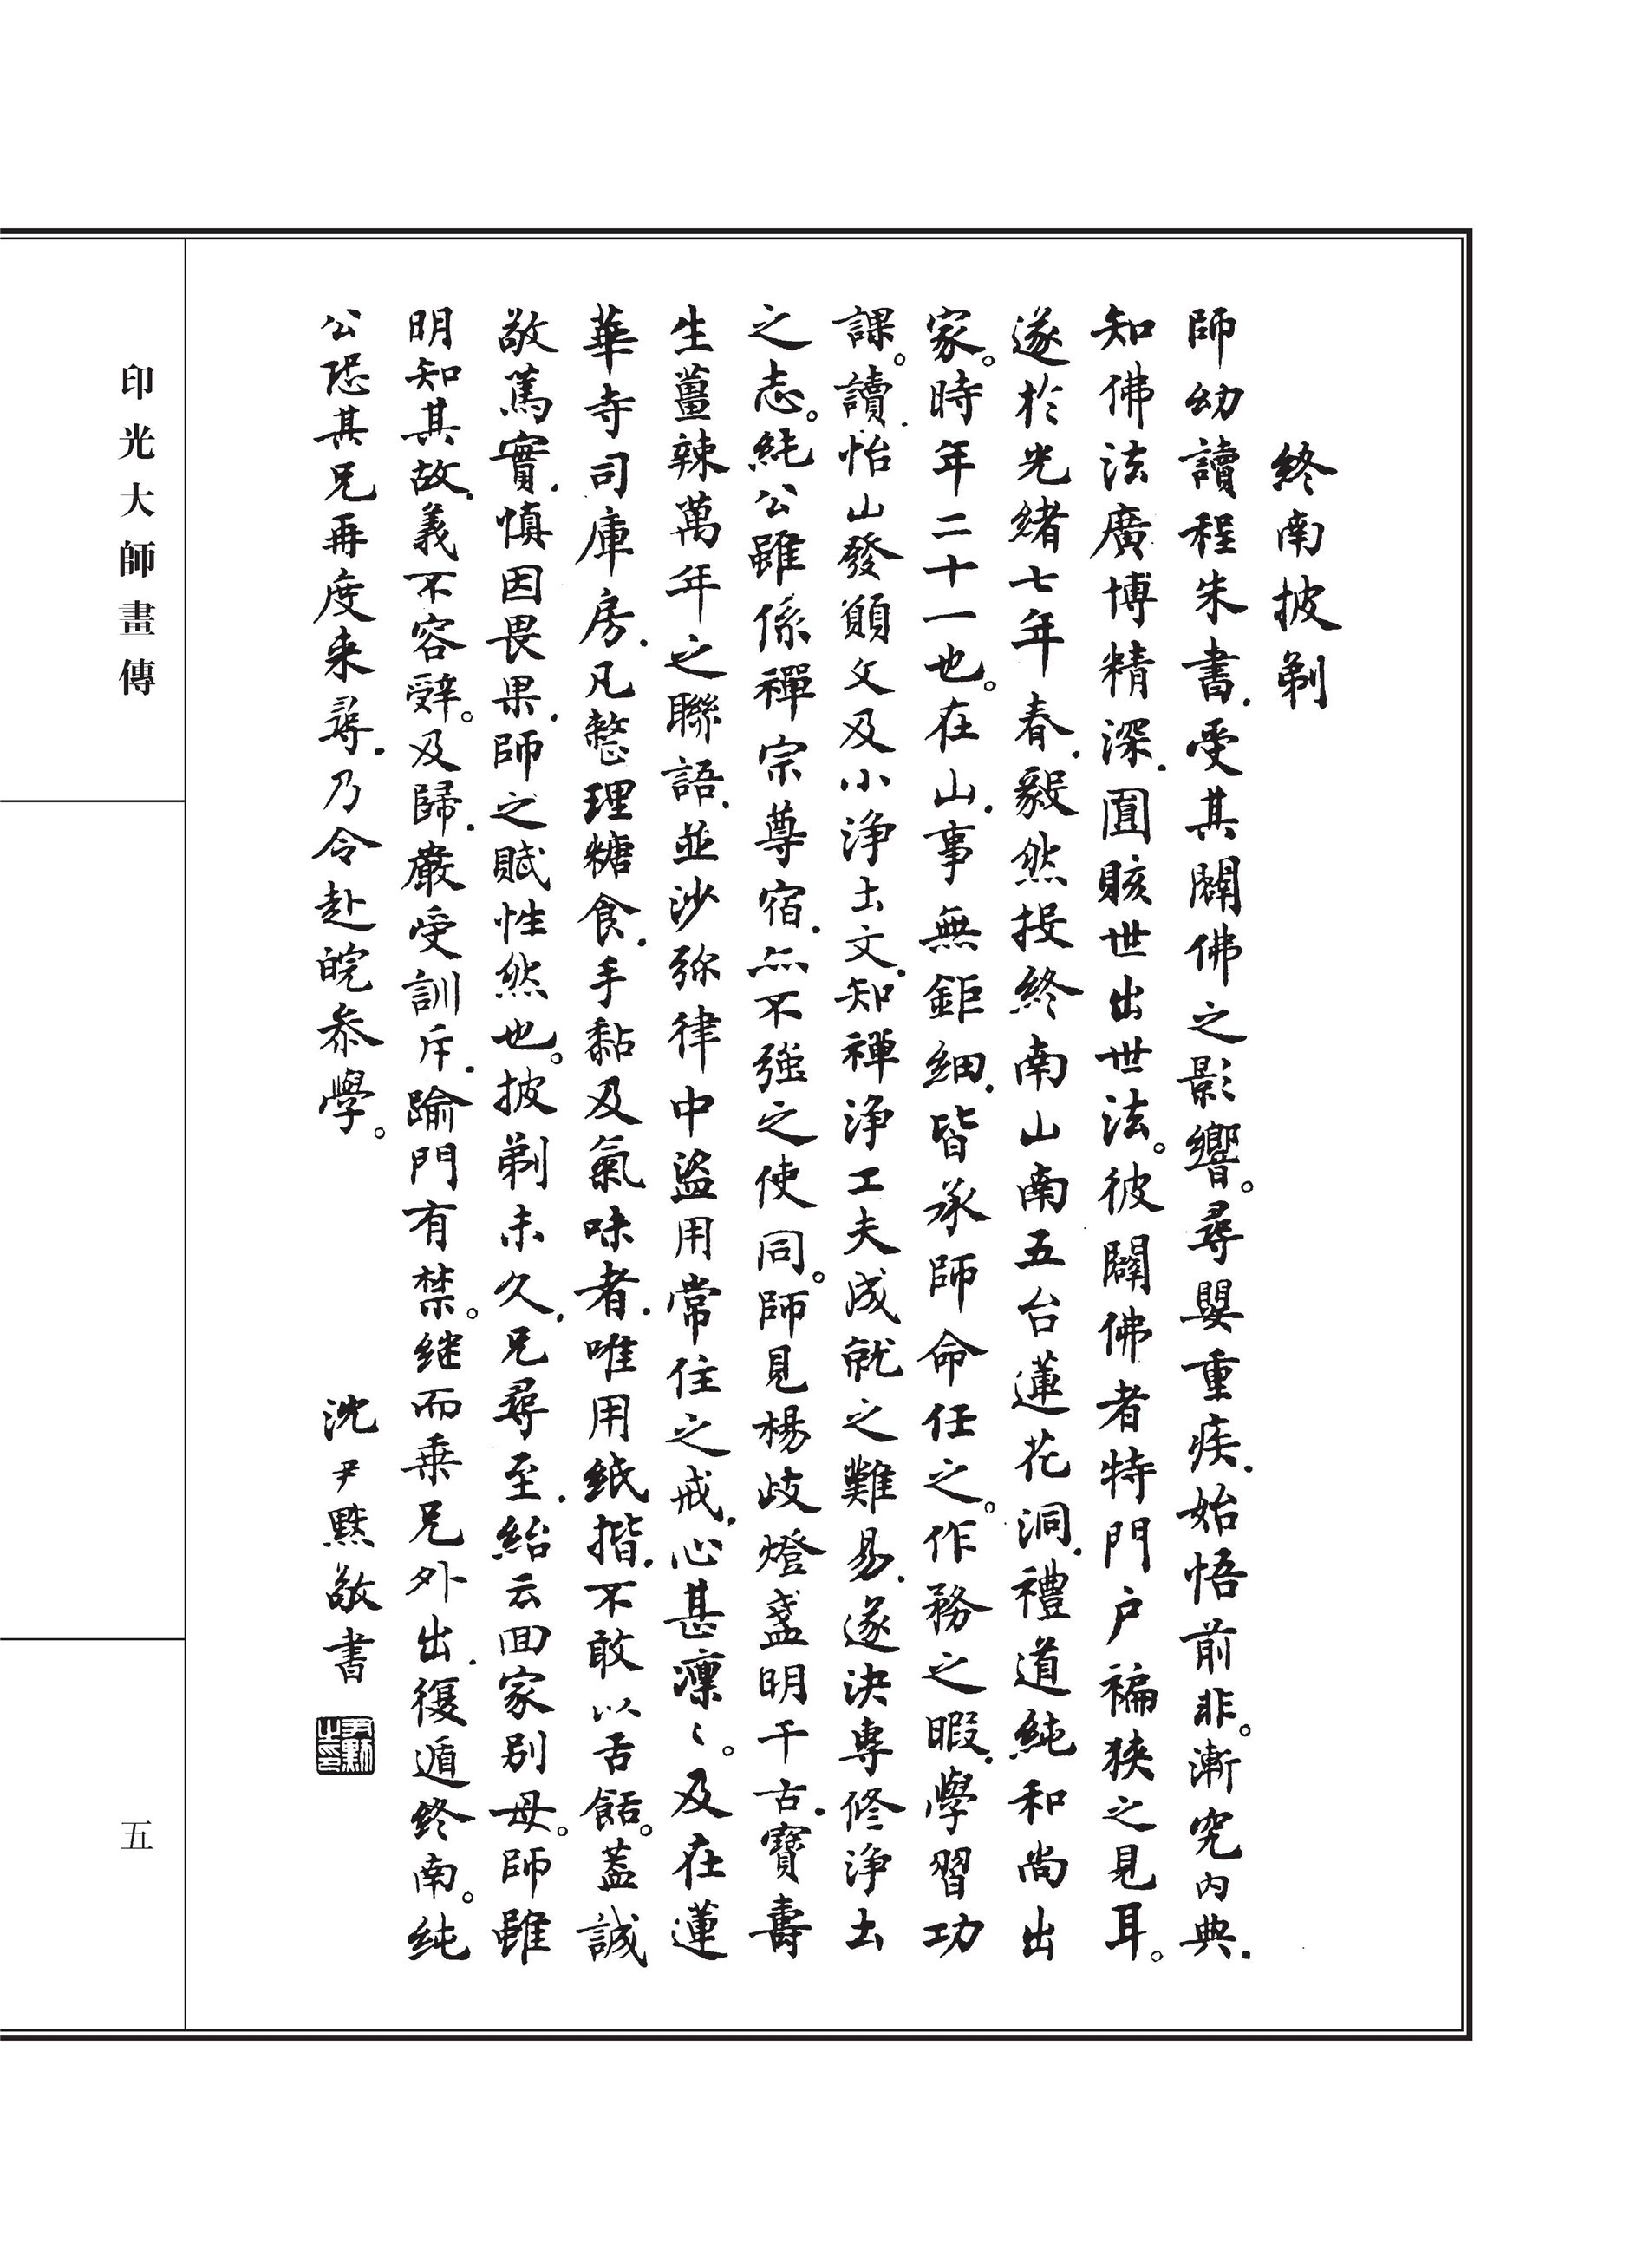 終南披剃
師幼讀程朱書.受其闢佛之影響。尋嬰重疾.始悟前非。漸究內典.
知佛法廣博精深.圓賅世出世法。彼闢佛者特門户褊狹之見耳。
遂於光緒七年春.毅然投終南山南五台蓮花洞.禮道純和尚出
家。時年二十一也。在山.事無鉅細.皆承師命任之。作務之暇.學習功
課。讀.怡山發願文及小淨土文.知禪淨工夫成就之難易.遂決專修淨土
之志。純公雖係禪宗尊宿.亦不強之使同。師見楊歧燈盞明千古.寶壽
生薑辣萬年之聯語.並沙弥律中盜用常住之戒.心甚凜〻。及在蓮
華寺司庫房.凡整理糖食.手黏及氣味者.唯用紙揩.不敢以舌餂。蓋誠
敬篤實.慎因畏果.師之賦性然也。披剃未久.兄尋至.紿云回家別母。師雖
明知其故.義不容辭。及歸.嚴受訓斥.踰門有禁。継而乘兄外出.復遁終南。純
公恐其兄再度来尋.乃令赴皖叅學。
沈尹默敬書
尹默之印
印光大師畫傳
五